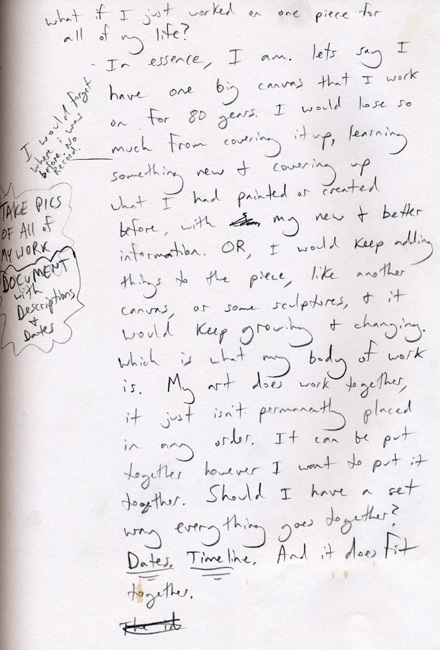 what if I just worked on one piece for
all of my life?
- In essence, I am. lets say I
have one big canvas that I work
on for 80 years. I would lose so
much from covering it up, learning
something new & covering up
what I had painted or created
before, with my new & better
information. OR, I would keep adding
things to the piece, like another
canvas, or some sculptures, & it
would keep growing & changing.
which is what my body of work
is. My art does work together,
it just isn't permanently placed
in any order. It can be put
together however I want to put it
together. Should I have a set
way everything goes together?
Dates. Timeline. And it does fit
together.
I would forget
where I was
before. No
Record.
TAKE PICS
OF All of
MY WORK
DOCUMENT
with
Descriptions
&
Dates